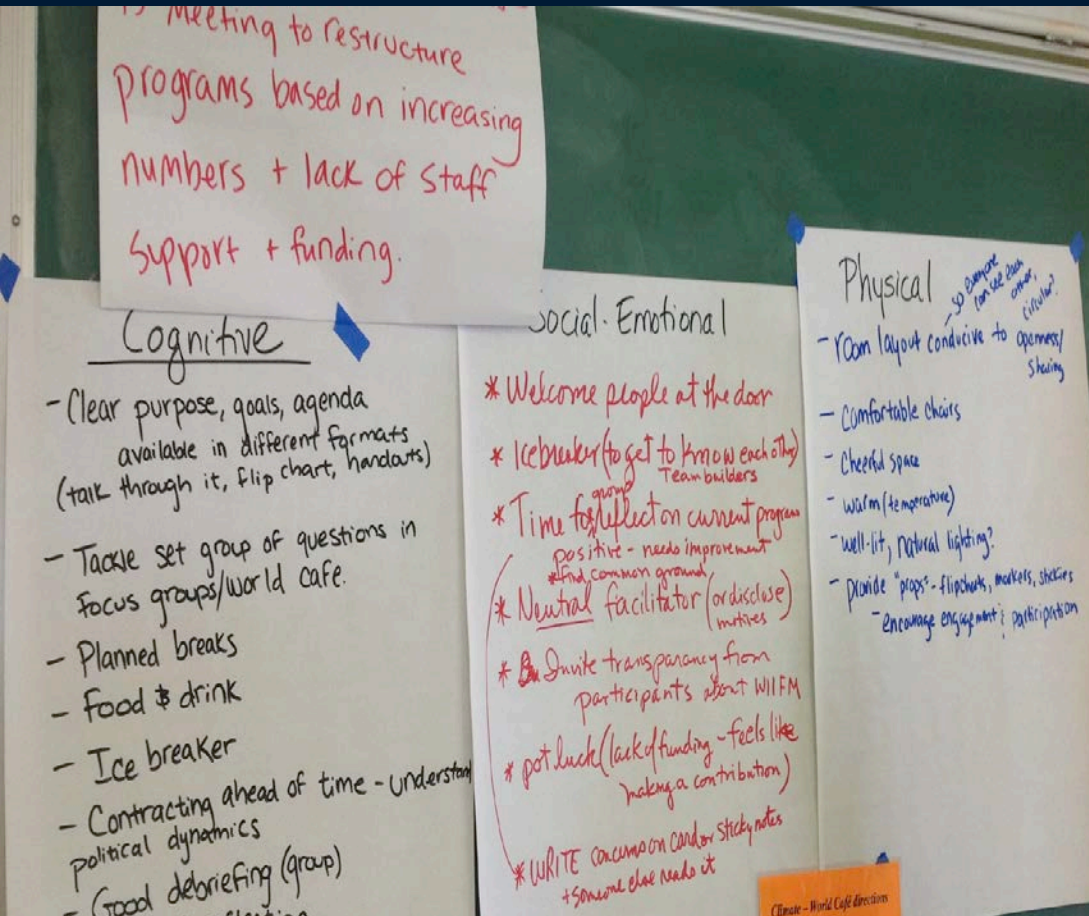 Meeting to restructure
programs based on increasing
numbers + lack of staff
support + funding.
Cognitive
- Clear purpose, goals, agenda
available in different formats
(talk through it, flip chart, handouts)
- Tackle set group of questions in
focus groups/world cafe.
- Planned breaks
- Food & drink
- Ice breaker
- Contracting ahead of time - understand
political dynamics
- Good debriefing (group)
Social-Emotional
* Welcome people at the door
* Icebreaker (to get to know each other)
Teambuilders
* Time for group reflect on current program
positive - needs improvement
*find common ground
* Neutral facilitator (or disclose
motives)
* Invite transparancy from
participants about WIIFM
* pot luck (lack of funding - feels like
making a contribution)
* WRITE concerns on card or sticky notes
+ someone else reads it
Physical
- so everyone
can see each
other,
circular?
- room layout conducive to openness/
sharing
- Comfortable chairs
- Cheerful space
- warm (temperature)
- well-lit, natural lighting?
- provide "props" - flipcharts, markers, stickies
- encourage engagement & participation
Climate - World Café directions